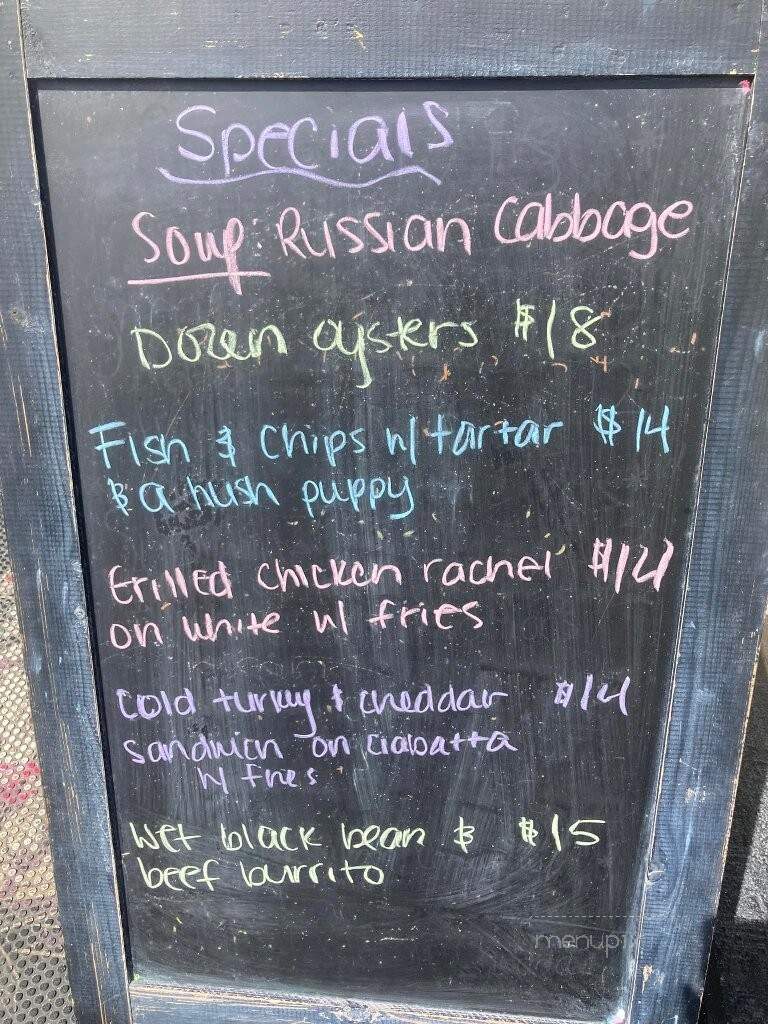 Specials
Soup: Russian Cabbage
Dozen oysters $18
Fish & Chips w/ tartar $14
& a hush puppy
Grilled chicken rachel $14
on white w/ fries
Cold turkey & cheddar $14
sandwich on ciabatta
w/ fries
Wet black bean & $15
beef burrito